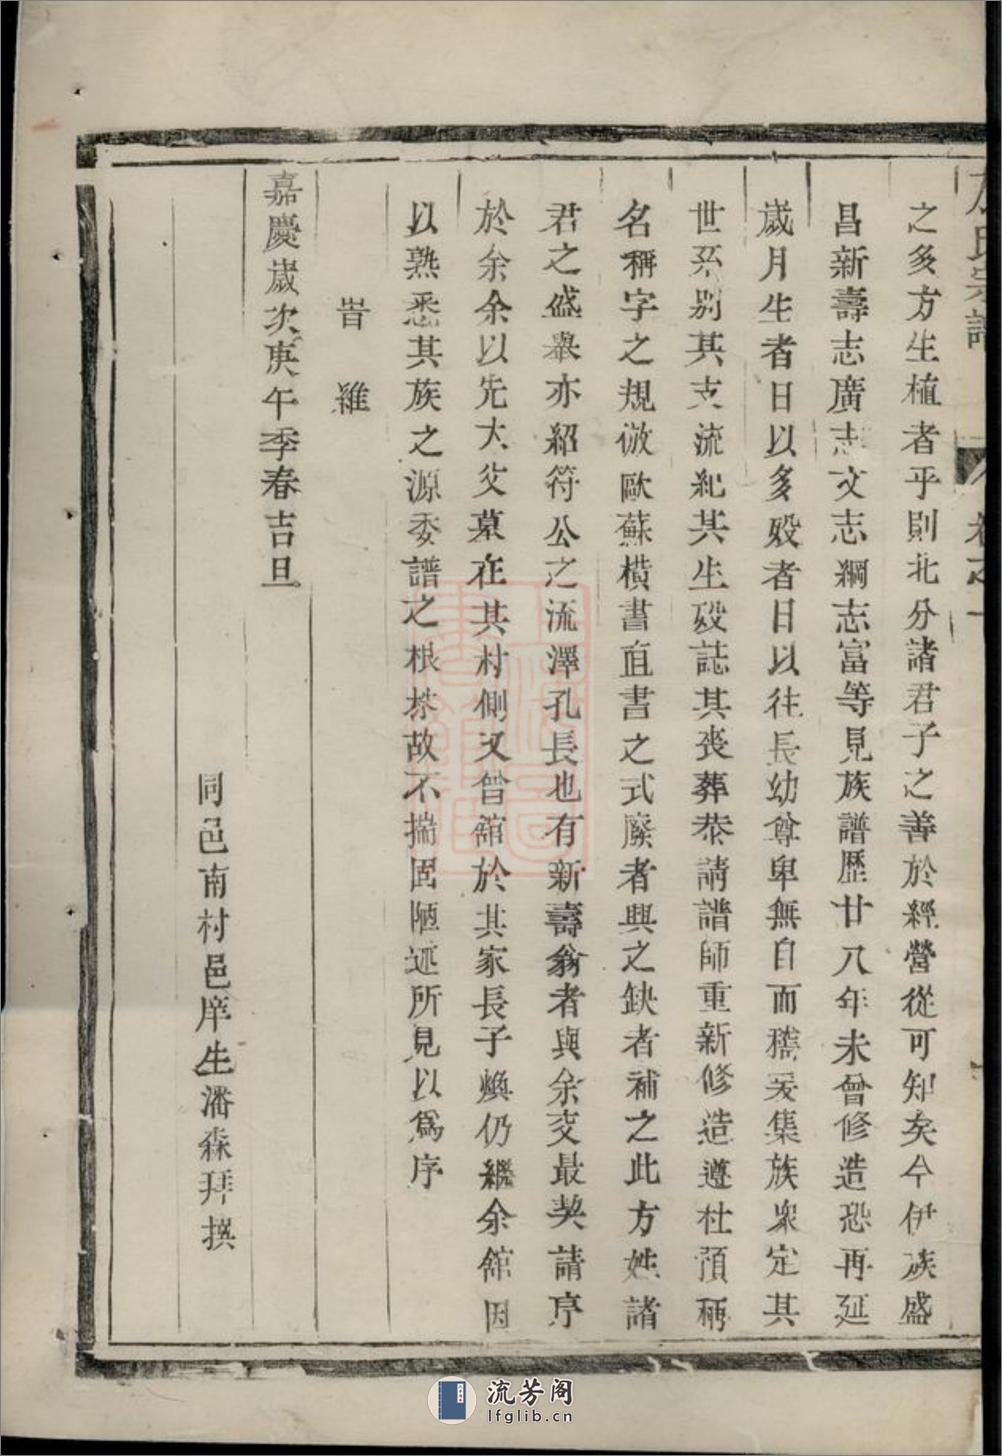 方氏宗譜 卷之一
之多方生植者乎則北分諸君子之善於經營從可知矣今伊族盛
昌新壽志廣志文志綱志富等見族譜歷廿八年未曾修造恐再延
歲月生者日以多歿者日以往長幼尊卑無自而稽爰集族衆定其
世系别其支流紀其生歿誌其喪葬恭請譜師重新修造遵杜預稱
名稱字之規倣歐蘇橫書直書之式廢者興之缺者補之此方姓諸
君之盛舉亦紹符公之流澤孔長也有新壽翁者與余交最契請序
於余余以先大父墓在其村側又曾舘於其家長子煥仍繼余舘因
以熟悉其族之源委譜之根荄故不揣固陋述所見以爲序
旹 維
嘉慶歲次庚午季春吉旦
同邑南村邑庠生潘森拜撰
流芳阁
lfglib.cn